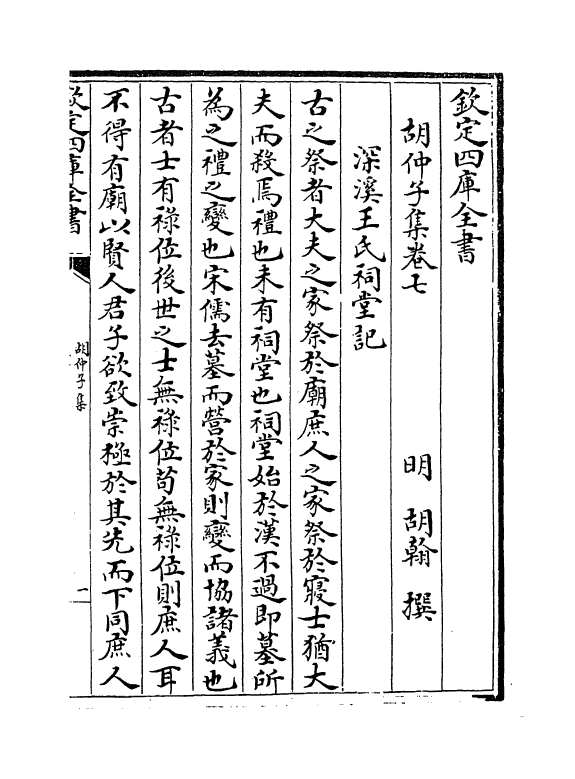 欽定四庫全書
胡仲子集卷七
明 胡翰 撰
深溪王氏祠堂記
古之祭者大夫之家祭於廟庶人之家祭於寢士猶大
夫而殺焉禮也未有祠堂也祠堂始於漢不過即墓所
為之禮之變也宋儒去墓而營於家則變而協諸義也
古者士有祿位後世之士無祿位苟無祿位則庶人耳
不得有廟以賢人君子欲致崇極於其先而下同庶人
欽定四庫全書
胡仲子集
一